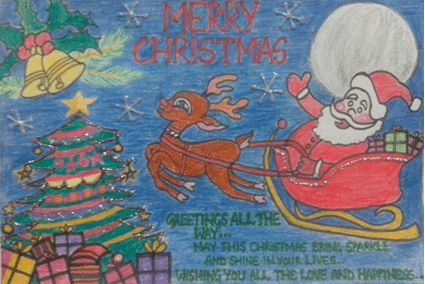 MERRY
CHRISTMAS
GREETINGS ALL THE
WAY...
MAY THIS CHRISTMAS BRING SPARKLE
AND SHINE IN YOUR LIVES..
WISHING YOU ALL THE LOVE AND HAPPINESS..